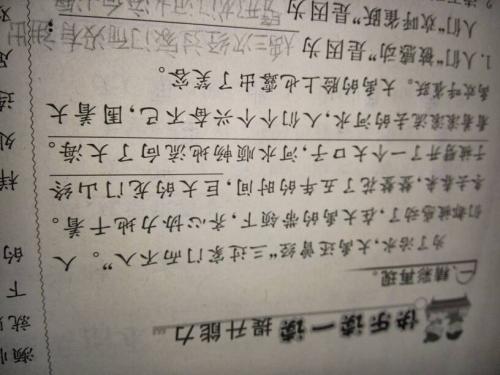 快乐读一读 提升能力
一、精彩再现。
为了治水，大禹还曾经“三过家门而不入”。人
们都被感动了，在大禹的带领下，齐心协力地干着。
冬去春来，整整花了五年的时间，巨大的龙门山终
于被劈开了一个大口子，河水顺畅地流向了大海。
看着滚滚流去的河水，人们个个兴奋不已，围着大
禹欢呼雀跃。大禹的脸上也露出了笑容。
1.人们“被感动”是因为 禹三次经过家门而没有进
人们“欢呼雀跃”是因为
就
下
的
样
处